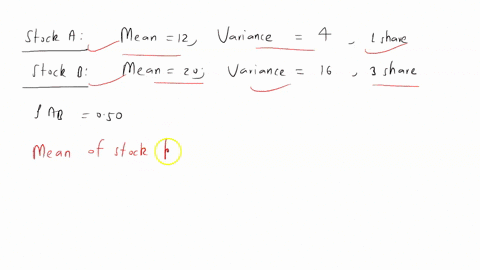 Stock A: Mean = 12, Variance = 4, 1 share
Stock B: Mean = 20, Variance = 16, 3 share
ρ AB = 0.50
Mean of stock p